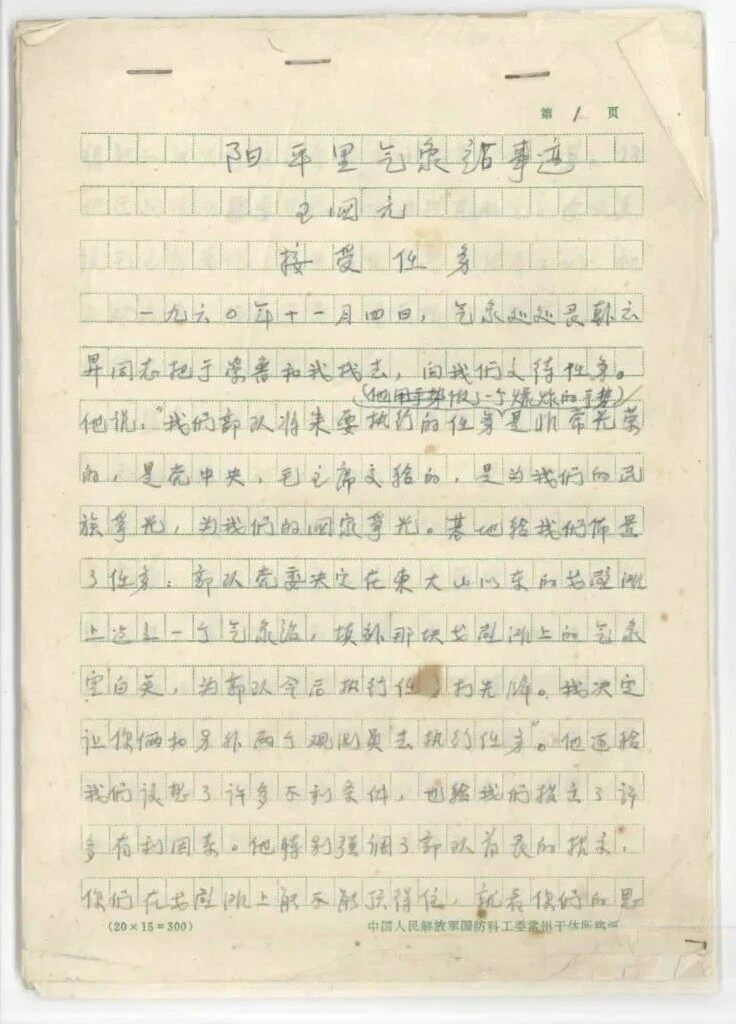 第 1 页
阳平里气象站事迹
王国元
接受任务
一九六〇年十一月四日，气象处处长韩云
昇同志把于荣普和我找去，向我们交待任务。
（他用手势做了一个爆炸的手势）
他说：“我们部队将来要执行的任务是非常光荣
的，是党中央，毛主席交给的，是为我们的民
族争光，为我们的国家争光。基地给我们布置
了任务：部队党委决定在东大山以东的戈壁滩
上建立一个气象站，填补那块戈壁滩上的气象
空白点，为部队今后执行任务打先锋。我决定
让你俩和另外两个观测员去执行任务”。他还给
我们设想了许多不利条件，也给我们指出了许
多有利因素。他特别强调了部队首长的指示：
你们在戈壁滩上能不能顶得住，就看你们的思
(20×15=300)
中国人民解放军国防科工委常州干休所